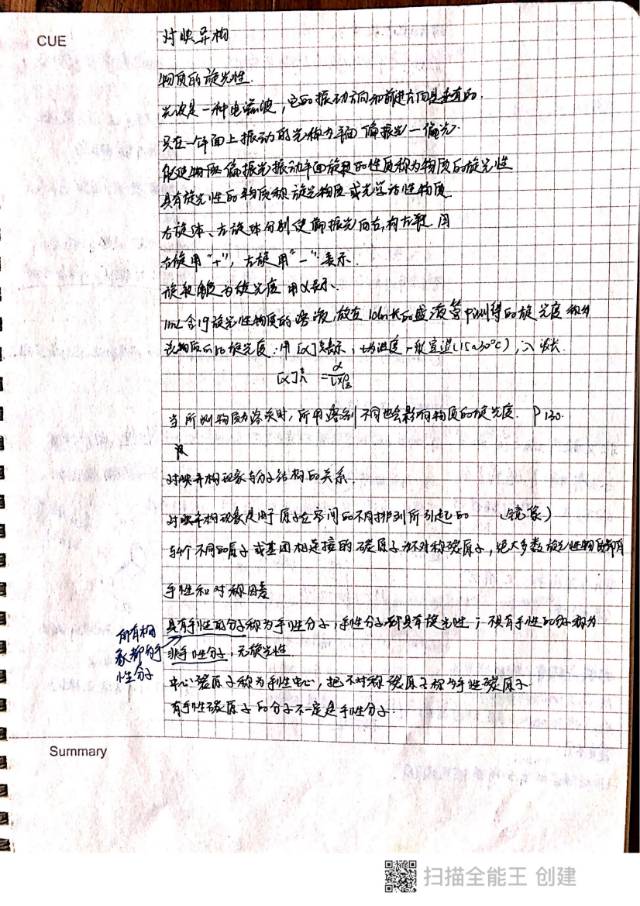 CUE
对映异构
物质的旋光性
光波是一种电磁波，它的振动方向和前进方向是垂直的.
只在一个平面上振动的光称为平面偏振光—偏光.
能使物质偏振光振动平面旋转的性质称为物质的旋光性
具有旋光性的物质称旋光物质或光学活性物质
右旋体、左旋体分别使偏振光向右,向左旋
右旋用"+"，左旋用"-"表示.
旋转角度为旋光度 用α表示.
1mL含1g旋光性物质的溶液,放在10cm长的盛液管中测得的旋光度称为
该物质的比旋光度.用[α]表示，t为温度,一般室温(15~30℃),λ波长.
当所测物质为溶液时,所用溶剂不同也会影响物质的旋光度. P130.
对映异构现象与分子结构的关系.
对映异构现象是由于原子在空间的不同排列所引起的 (镜象)
与4个不同的原子或基团相连接的碳原子为不对称碳原子,绝大多数旋光性物质都有
手性和对称因素
具有手性的分子称为手性分子,手性分子都具有旋光性；不具有手性的分子称为
非手性分子,无旋光性
性分子
中心碳原子称为手性中心,把不对称碳原子称为手性碳原子
有手性碳原子的分子不一定是手性分子.
Summary
扫描全能王 创建